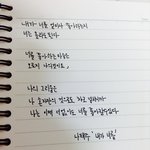 내가 너를 얼마나 좋아하는지
너는 몰라도 된다
너를 좋아하는 마음은
오로지 나의 것이요,
나의 그리움은
나 혼자만의 것으로도 차고 넘치니까
나는 이제 너 없이도 너를 좋아할 수 있다
나태주 '내가 너를'